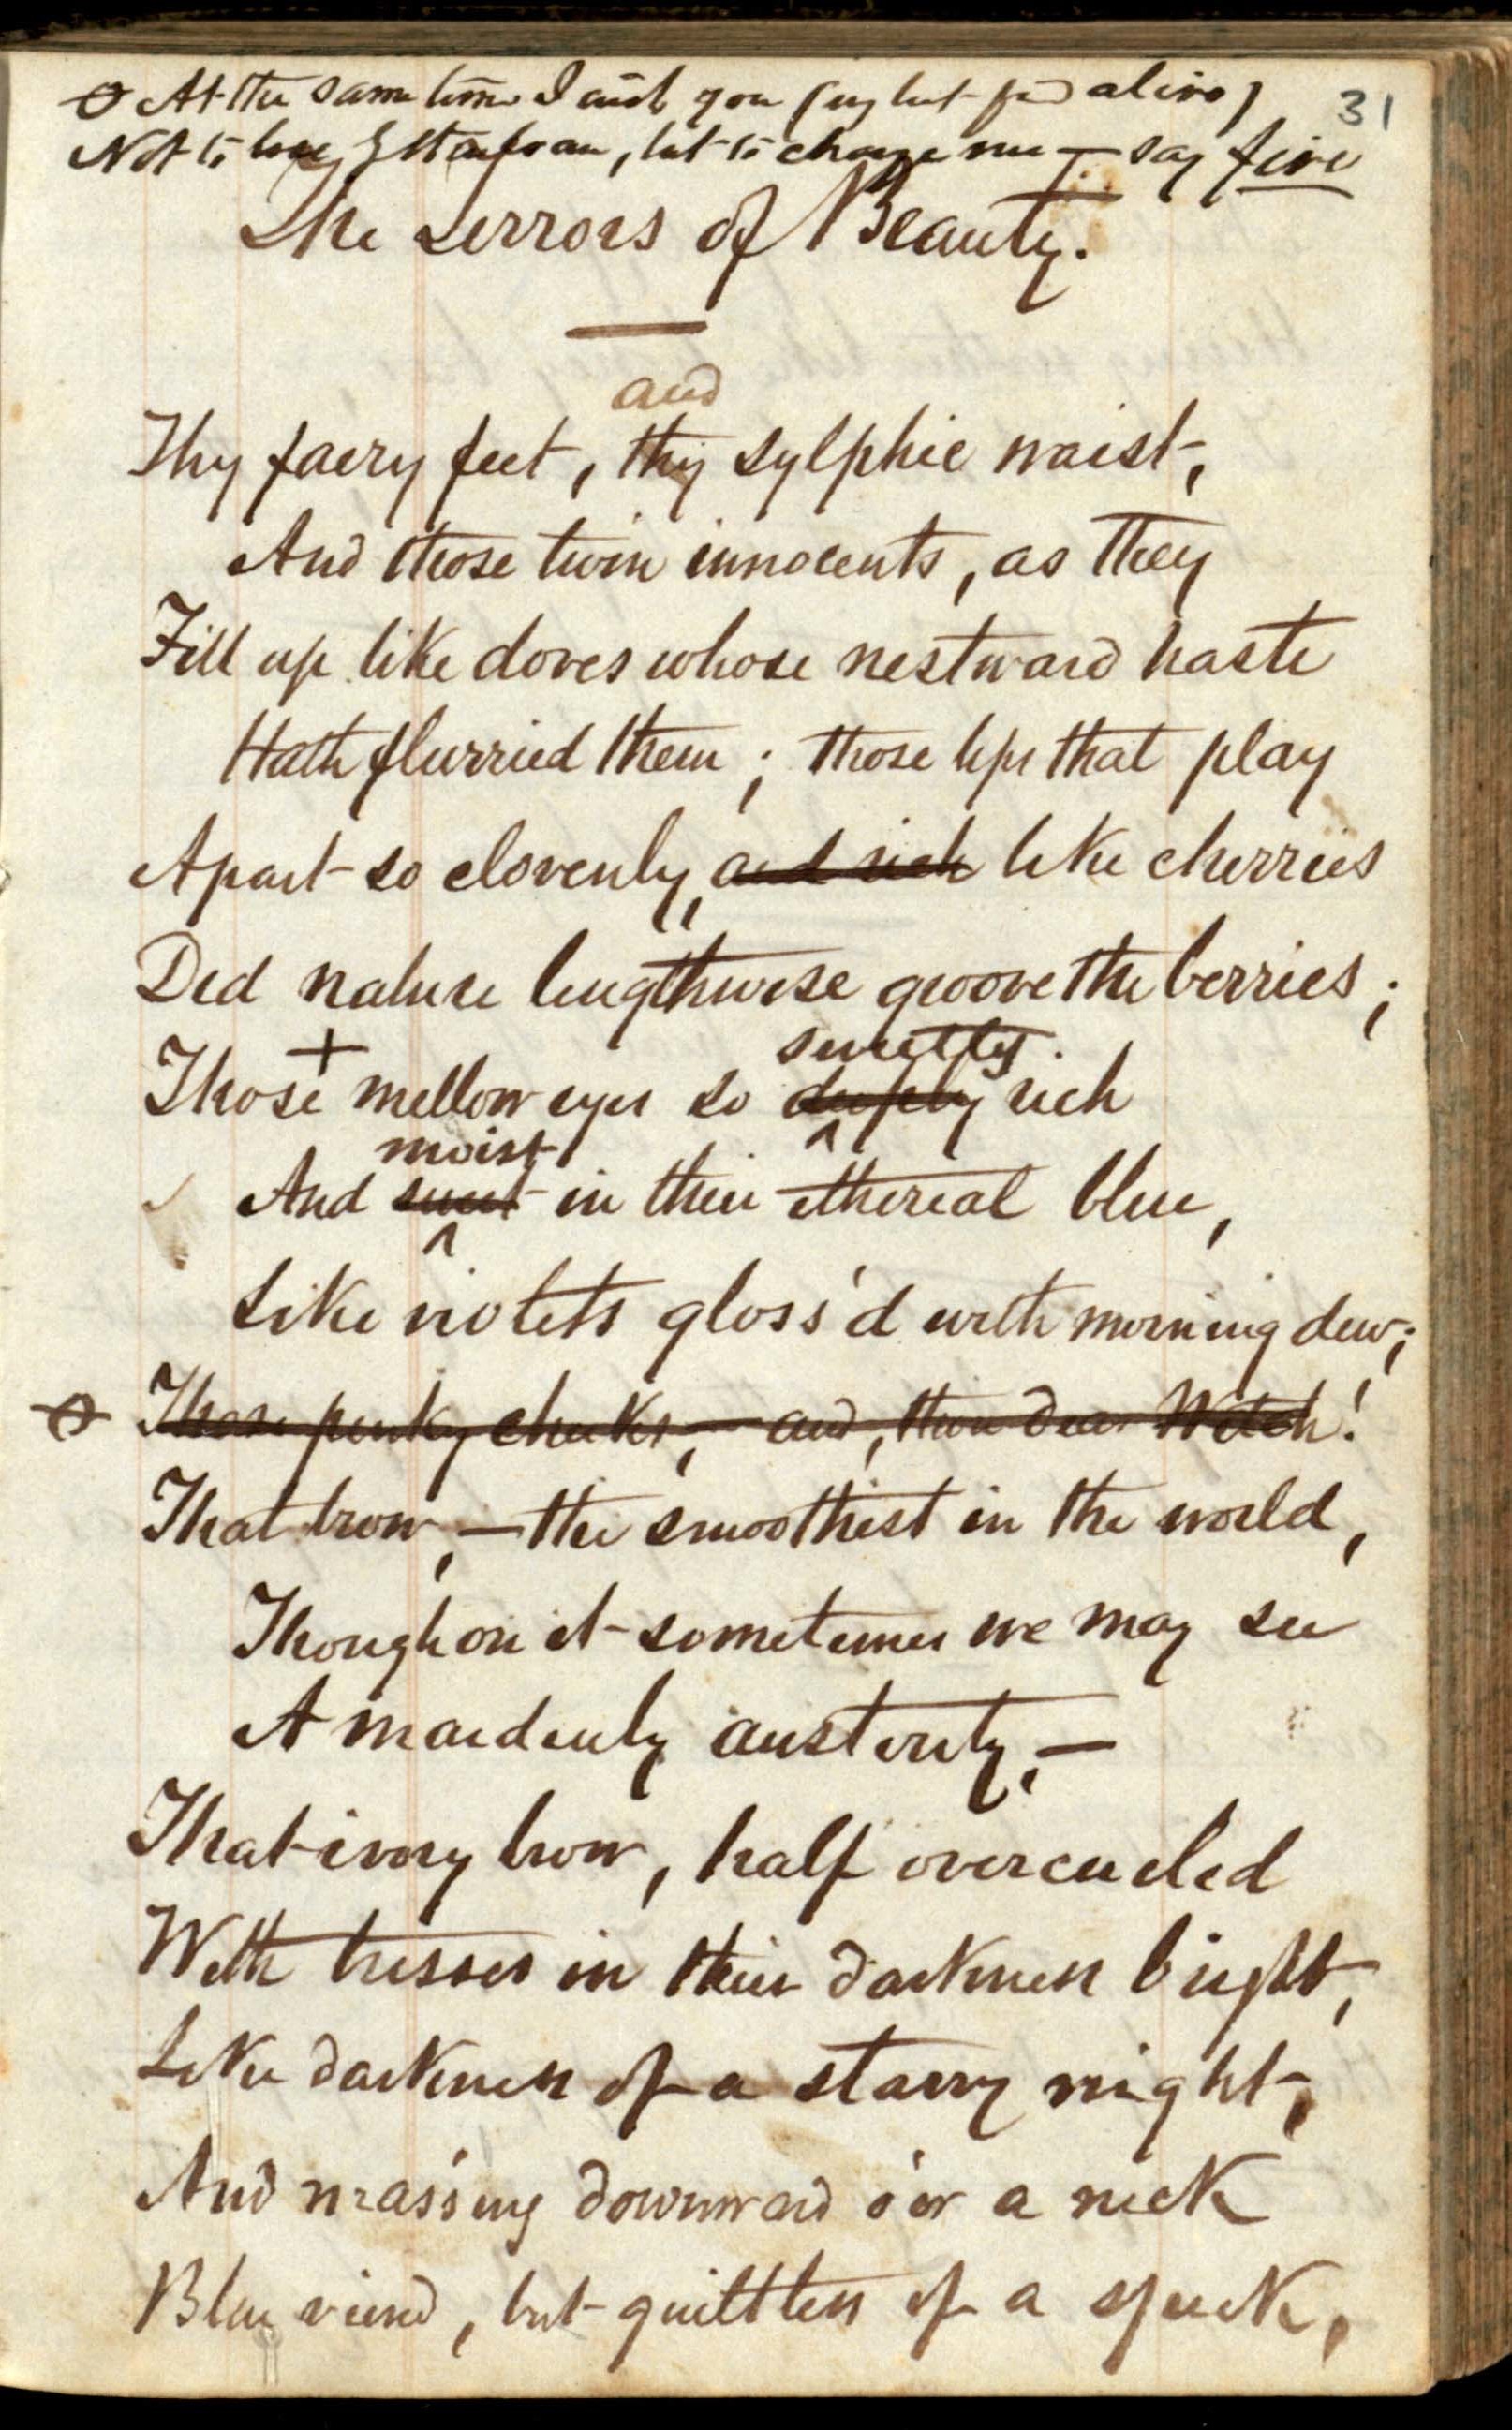 At the same time I wish you (my but alive)
31
Not to but to charge me — say five
The Terrors of Beauty.
and
Thy faery feet, thy sylphic waist,
And those twin innocents, as they
Fill up like doves whose nestward haste
Hath flurried them; those lips that play
Apart so clovenly, and rich like cherries
Did nature lengthwise groove the berries;
sweetly
Those + mellow eyes so deeply rich
moist
And sweet in their ethereal blue,
Like violets gloss'd with morning dew;
Those pinky cheeks, — and, thou dear Witch!
That brow, — the smoothest in the world,
Though on it sometimes we may see
A maidenly austerity, —
That ivory brow, half overcurled
With tresses in their darkness bright,
Like darkness of a starry night,
And massing downward o'er a neck
Blue vein'd, but guiltless of a speck,